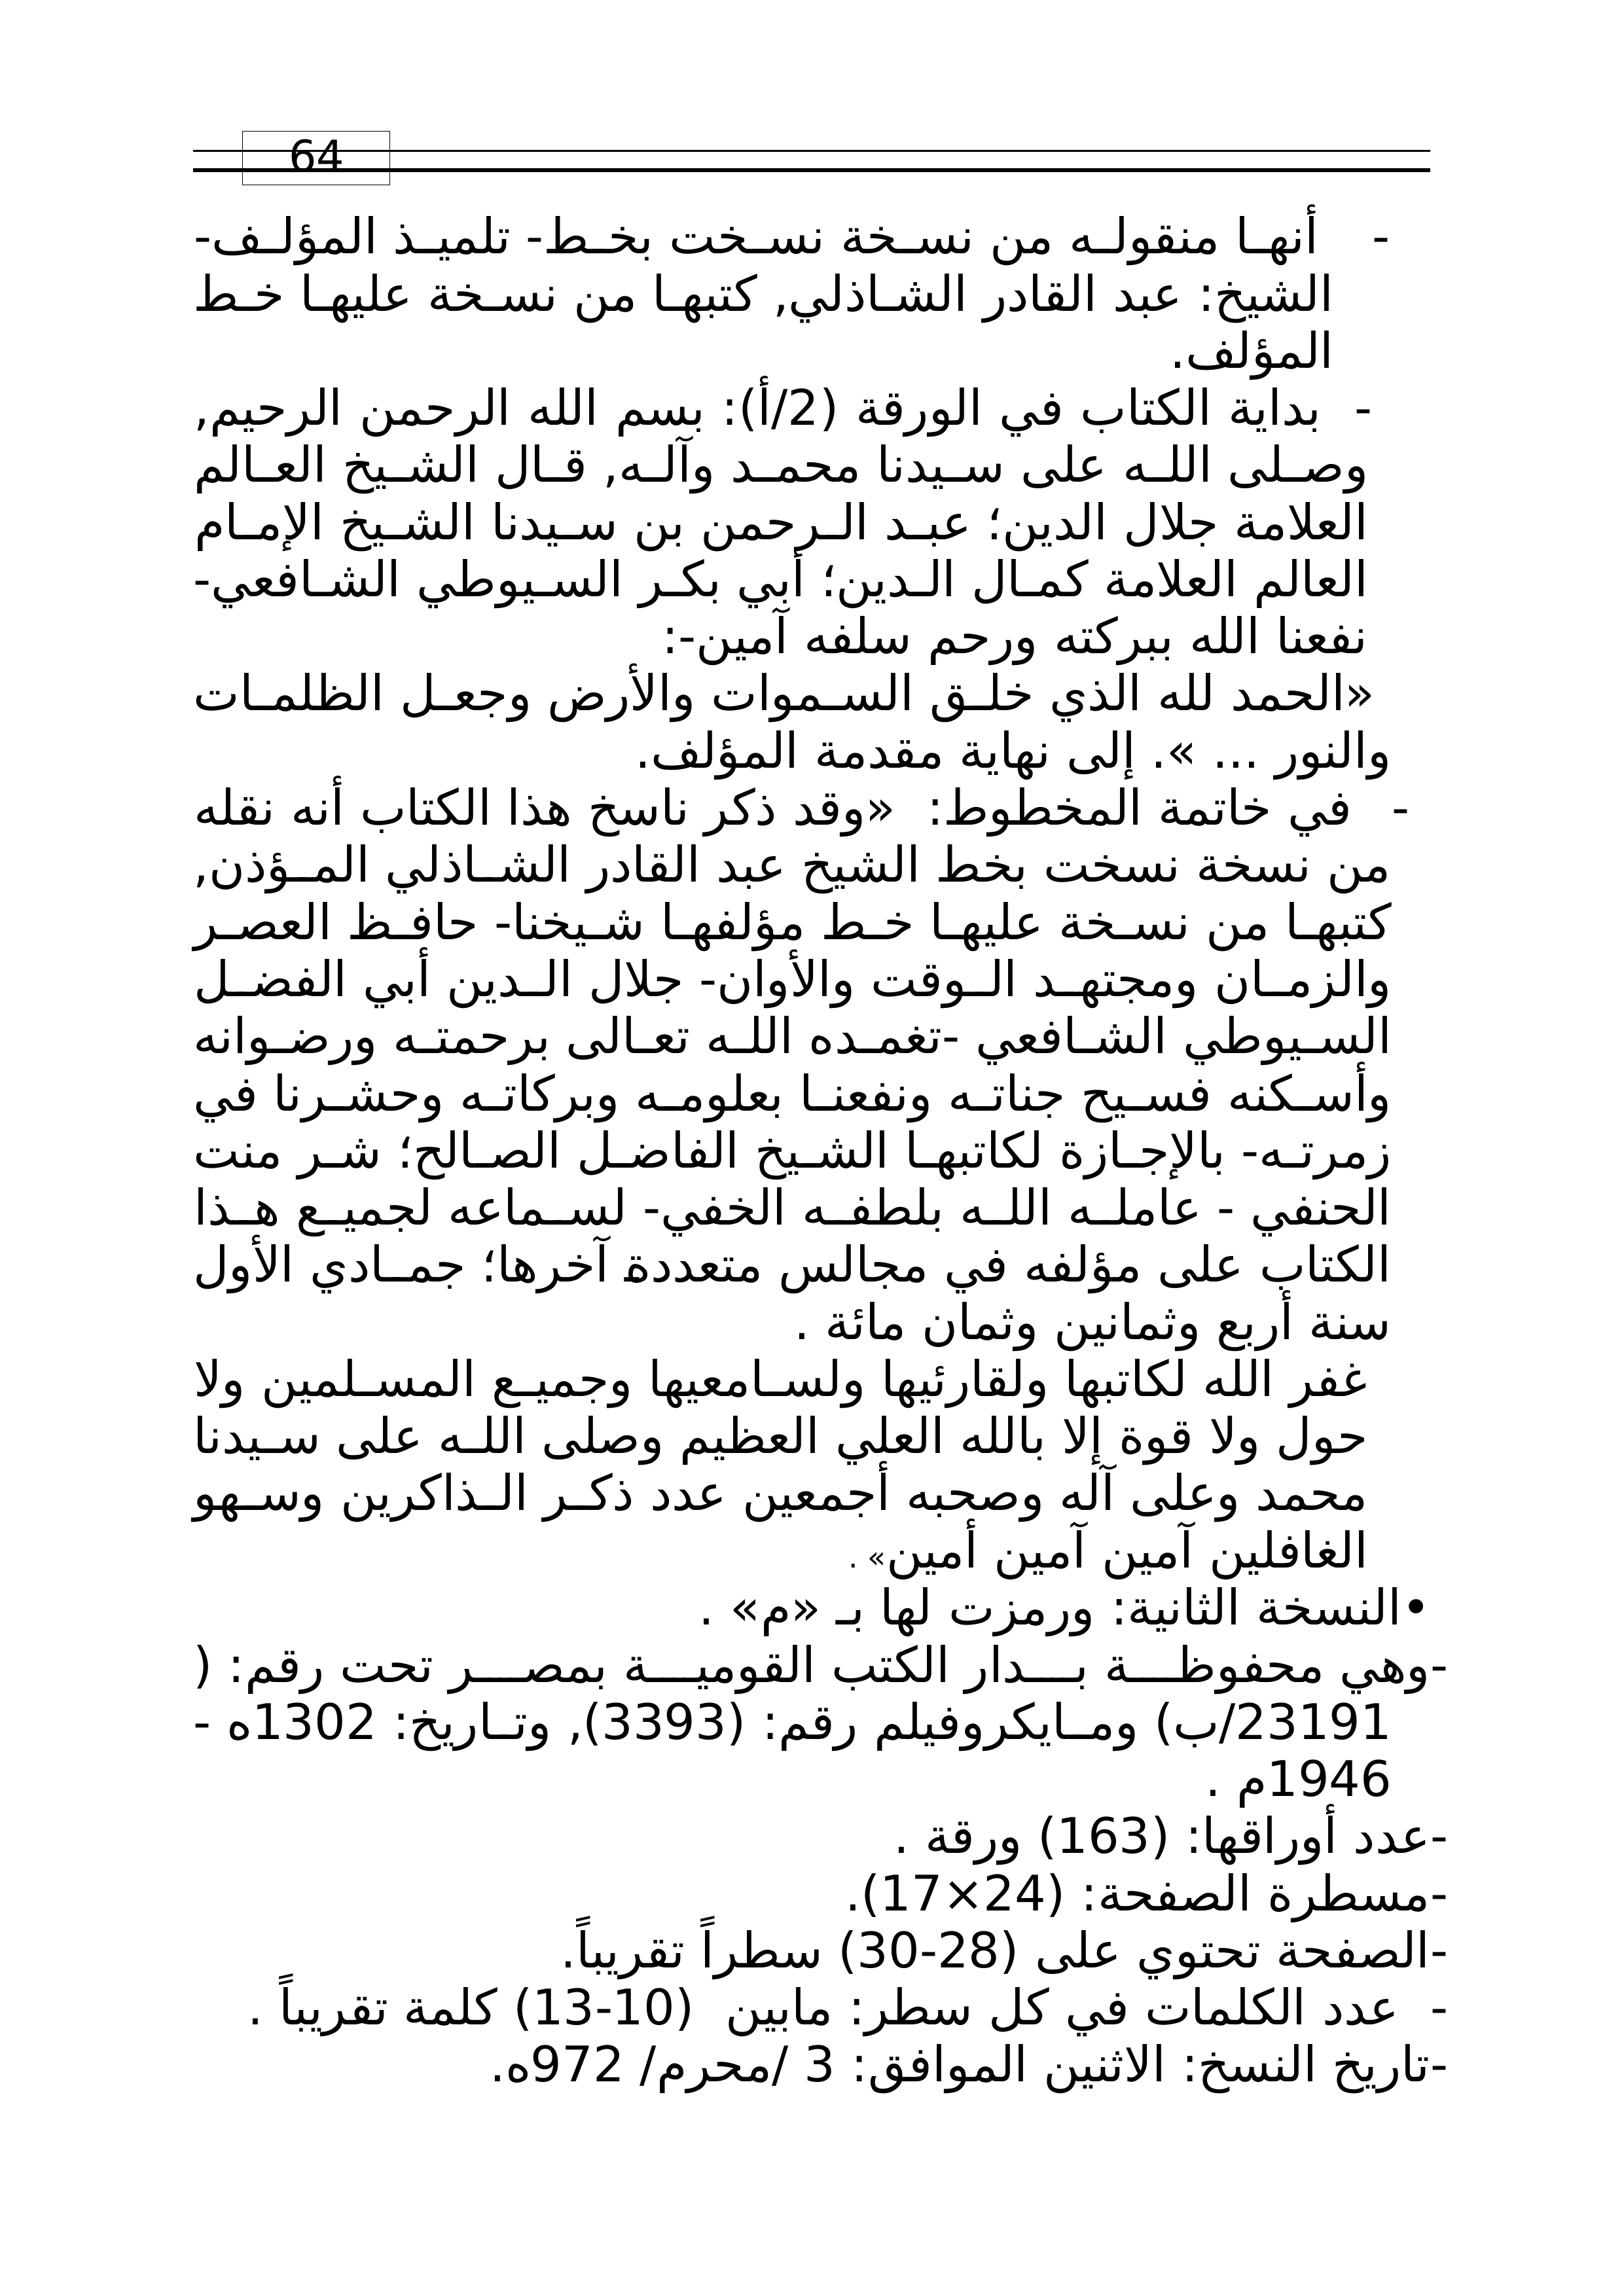 64
- أنها منقوله من نسخة نسخت بخط- تلميذ المؤلف-
الشيخ: عبد القادر الشاذلي, كتبها من نسخة عليها خط
المؤلف.
- بداية الكتاب في الورقة (2/أ): بسم الله الرحمن الرحيم,
وصلى الله على سيدنا محمد وآله, قال الشيخ العالم
العلامة جلال الدين؛ عبد الرحمن بن سيدنا الشيخ الإمام
العالم العلامة كمال الدين؛ أبي بكر السيوطي الشافعي-
نفعنا الله ببركته ورحم سلفه آمين-:
«الحمد لله الذي خلق السموات والأرض وجعل الظلمات
والنور ... ». إلى نهاية مقدمة المؤلف.
- في خاتمة المخطوط: «وقد ذكر ناسخ هذا الكتاب أنه نقله
من نسخة نسخت بخط الشيخ عبد القادر الشاذلي المؤذن,
كتبها من نسخة عليها خط مؤلفها شيخنا- حافظ العصر
والزمان ومجتهد الوقت والأوان- جلال الدين أبي الفضل
السيوطي الشافعي -تغمده الله تعالى برحمته ورضوانه
وأسكنه فسيح جناته ونفعنا بعلومه وبركاته وحشرنا في
زمرته- بالإجازة لكاتبها الشيخ الفاضل الصالح؛ شر منت
الحنفي - عامله الله بلطفه الخفي- لسماعه لجميع هذا
الكتاب على مؤلفه في مجالس متعددة آخرها؛ جمادي الأول
سنة أربع وثمانين وثمان مائة .
غفر الله لكاتبها ولقارئيها ولسامعيها وجميع المسلمين ولا
حول ولا قوة إلا بالله العلي العظيم وصلى الله على سيدنا
محمد وعلى آله وصحبه أجمعين عدد ذكر الذاكرين وسهو
الغافلين آمين آمين أمين» .
•النسخة الثانية: ورمزت لها بـ «م» .
-وهي محفوظة بدار الكتب القومية بمصر تحت رقم: (
23191/ب) ومايكروفيلم رقم: (3393), وتاريخ: 1302ه -
1946م .
-عدد أوراقها: (163) ورقة .
-مسطرة الصفحة: (24×17).
-الصفحة تحتوي على (28-30) سطراً تقريباً.
- عدد الكلمات في كل سطر: مابين (10-13) كلمة تقريباً .
-تاريخ النسخ: الاثنين الموافق: 3 /محرم/ 972ه.